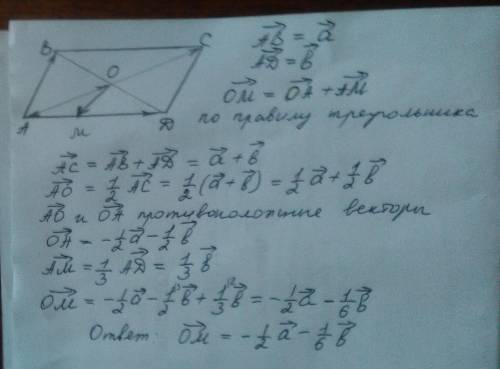 B
C
O
A
M
D
AB⃗ = a⃗
AD⃗ = b⃗
OM⃗ = OA⃗ + AM⃗
по правилу треугольника
AC⃗ = AB⃗ + AD⃗ = a⃗ + b⃗
AO⃗ = 1/2 AC⃗ = 1/2 (a⃗ + b⃗) = 1/2 a⃗ + 1/2 b⃗
AO⃗ и OA⃗ противоположные векторы
OA⃗ = -1/2 a⃗ - 1/2 b⃗
AM⃗ = 1/3 AD⃗ = 1/3 b⃗
OM⃗ = -1/2 a⃗ - 1/2 b⃗ + 1/3 b⃗ = -1/2 a⃗ - 1/6 b⃗
Ответ: OM⃗ = -1/2 a⃗ - 1/6 b⃗